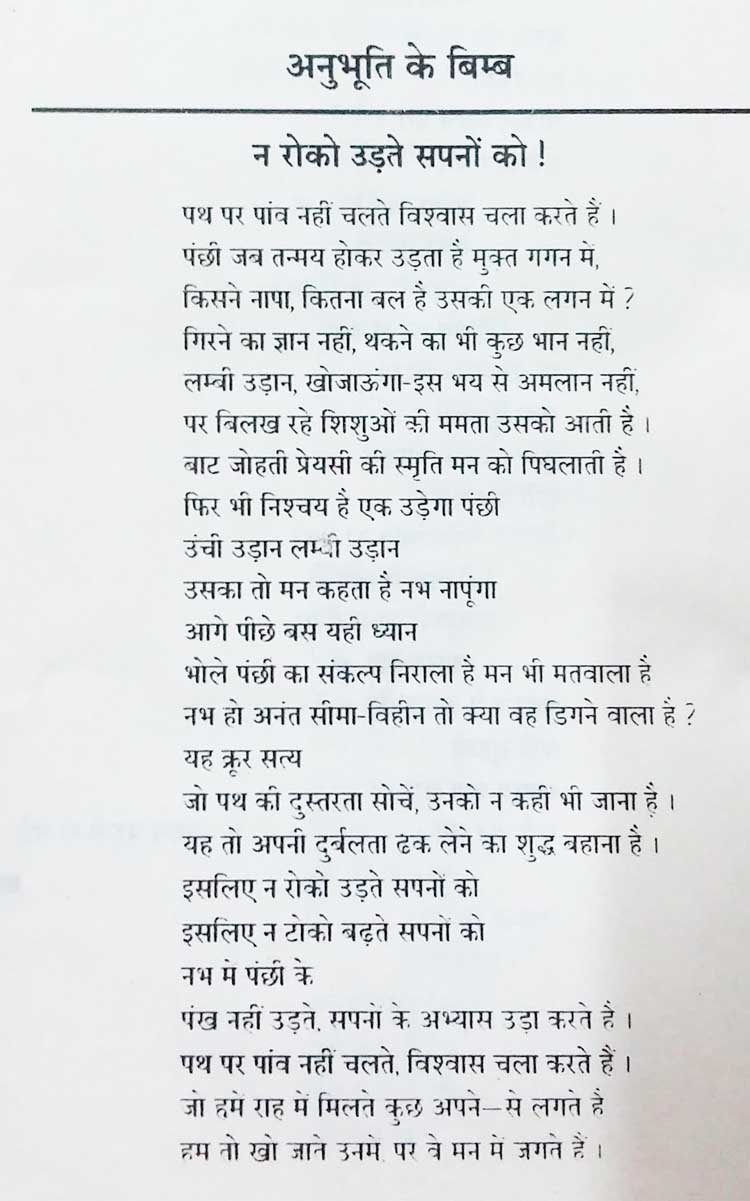 अनुभूति के बिम्ब
न रोको उड़ते सपनों को !
पथ पर पांव नहीं चलते विश्वास चला करते हैं ।
पंछी जब तन्मय होकर उड़ता है मुक्त गगन में,
किसने नापा, कितना बल है उसकी एक लगन में ?
गिरने का ज्ञान नहीं, थकने का भी कुछ भान नहीं,
लम्बी उड़ान, खोजाऊंगा-इस भय से अमलान नहीं,
पर बिलख रहे शिशुओं की ममता उसको आती है ।
बाट जोहती प्रेयसी की स्मृति मन को पिघलाती है ।
फिर भी निश्चय है एक उड़ेगा पंछी
उंची उड़ान लम्बी उड़ान
उसका तो मन कहता है नभ नापूंगा
आगे पीछे बस यही ध्यान
भोले पंछी का संकल्प निराला है मन भी मतवाला है
नभ हो अनंत सीमा-विहीन तो क्या वह डिगने वाला है ?
यह क्रूर सत्य
जो पथ की दुस्तरता सोचें, उनको न कहीं भी जाना है ।
यह तो अपनी दुर्बलता ढक लेने का शुद्ध बहाना है ।
इसलिए न रोको उड़ते सपनों को
इसलिए न टोको बढ़ते सपनों को
नभ में पंछी के
पंख नहीं उड़ते, सपनों के अभ्यास उड़ा करते है ।
पथ पर पांव नहीं चलते, विश्वास चला करते हैं ।
जो हमें राह में मिलते कुछ अपने–से लगते है
हम तो खो जाते उनमे, पर वे मन में जगते हैं ।